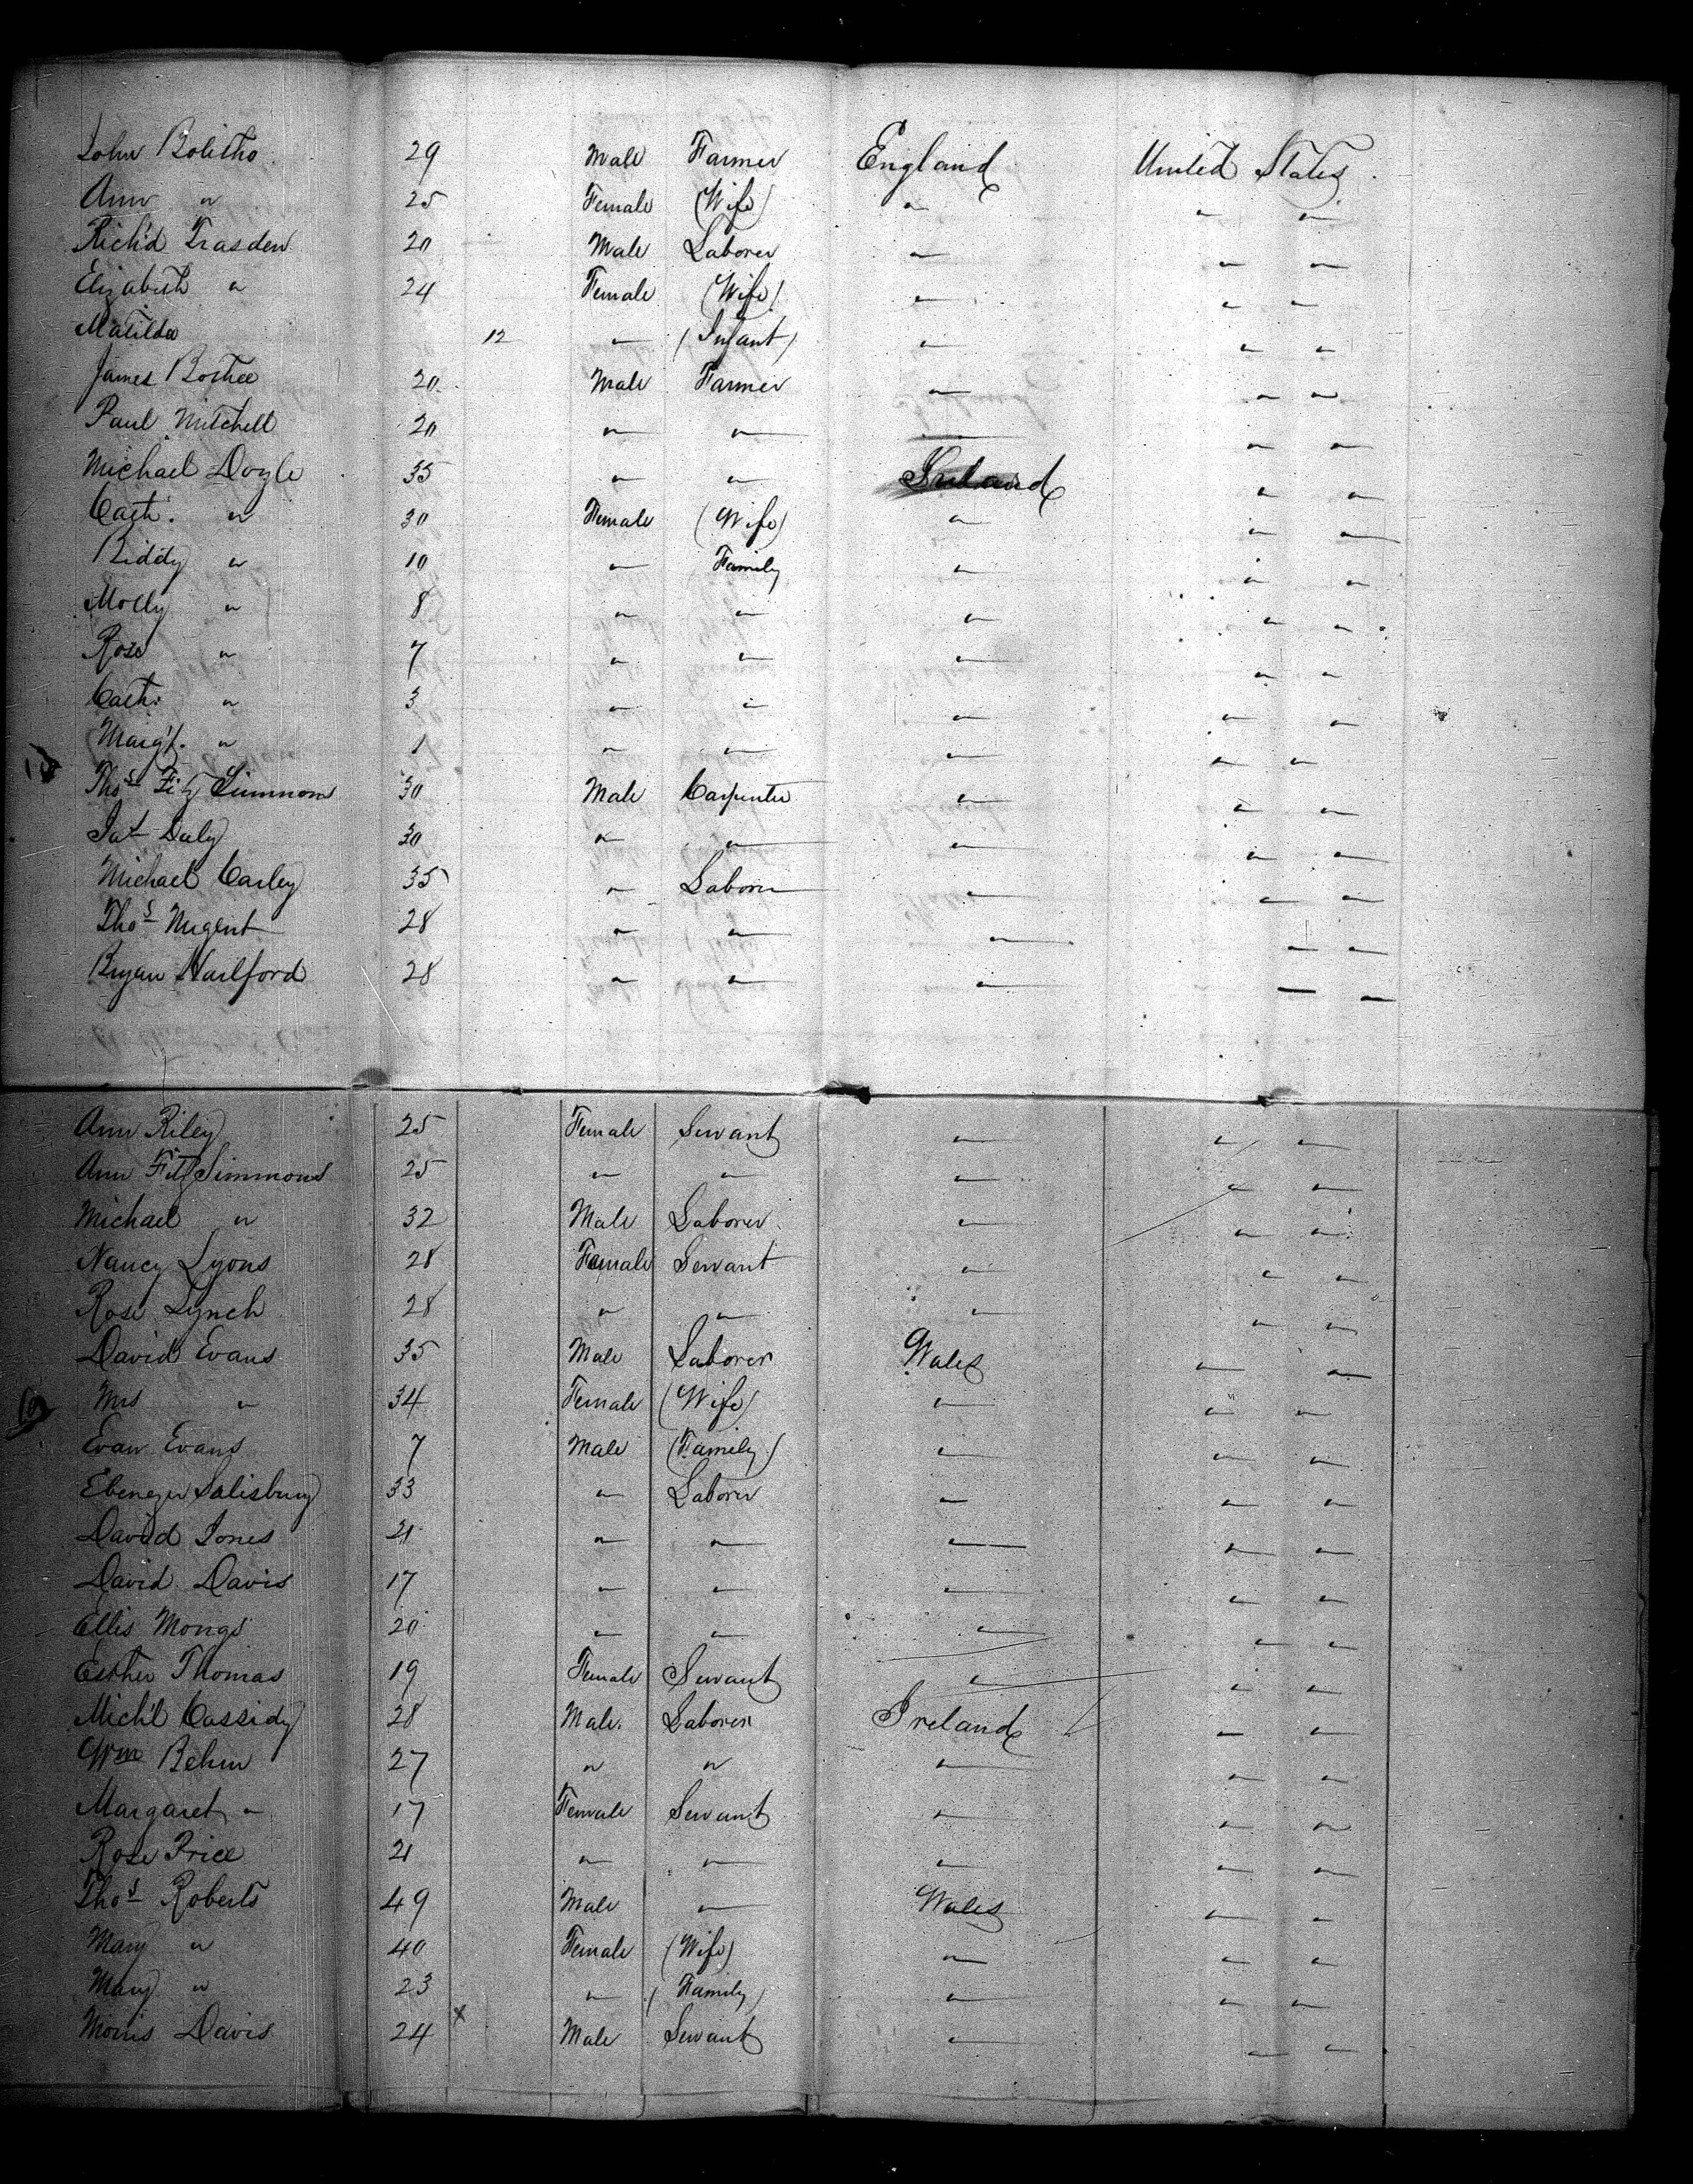 John Bolitho 29 Male Farmer England United States
Ann " 25 Female (Wife) " " "
Rich'd Trasden 20 Male Laborer " " "
Elizabeth " 24 Female (Wife) " " "
Matilda 12 " (Infant) " " "
James 20 Male Farmer " " "
Paul Mitchell 20 " " " " "
Michael Doyle 35 " " Ireland " "
Cath. " 30 Female (Wife) " " "
Biddy " 10 " Family " " "
Molly " 8 " " " " "
Rose " 7 " " " " "
Cath. " 3 " " " " "
Marg't. " 1 " " " " "
Thos Fitz Simmons 30 Male Carpenter " " "
Pat Daly 30 " " " " "
Michael Carley 35 " Laborer " " "
Thos Nugent 28 " " " " "
Bryan Harlford 28 " " " " "
Ann Riley 25 Female Servant " " "
Ann FitzSimmons 25 " " " " "
Michael " 32 Male Laborer " " "
Nancy Lyons 28 Female Servant " " "
Rose Lynch 28 " " " " "
David Evans 35 Male Laborer Wales " "
Mrs " 34 Female (Wife) " " "
Evan Evans 7 Male (Family) " " "
Ebenezer Salisbury 33 " Laborer " " "
David Jones 21 " " " " "
David Davis 17 " " " " "
Ellis 20 " " " " "
Esther Thomas 19 Female Servant " " "
Mich'l Cassidy 28 Male Laborer Ireland " "
Wm Behm 27 " " " " "
Margaret " 17 Female Servant " " "
Rose Price 21 " " " " "
Thos Roberts 49 Male " Wales " "
Mary " 40 Female (Wife) " " "
Mary " 23 " (Family) " " "
Morris Davis 24 x Male Servant " " "